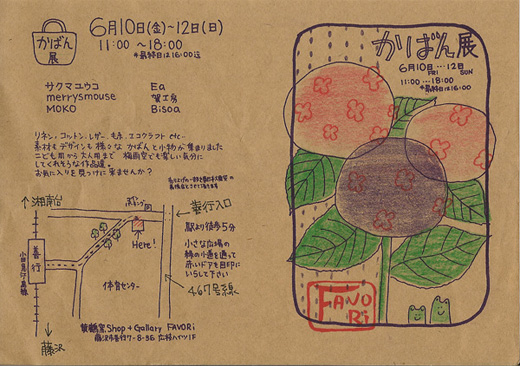 かばん
展
6月10日(金)~12日(日)
11:00 ~ 18:00
*最終日は16:00迄
サクマユウコ
merrysmouse
MOKO
Ea
賀工房
Bisoa
リネン、コットン、レザー、毛糸、エコクラフト etc…
素材もデザインも様々な かばんと小物が集まりました
こども用から大人用まで 梅雨空でも楽しい気分に
してくれそうな作品達。
お気に入りを見つけに来ませんか?
↑湘南台
善行
小田急江ノ島線
藤沢
Here!
体育センター
善行入口
駅より徒歩5分
小さな広場の
緑の小道を通って
赤いドアを目印に
いらして下さい
467号線
Shop + Gallary FAVORi
藤沢市善行7-8-36 広村ハイツ1F
かばん展
6月10日…12日
FRI
SUN
11:00…18:00
*最終日は16:00迄